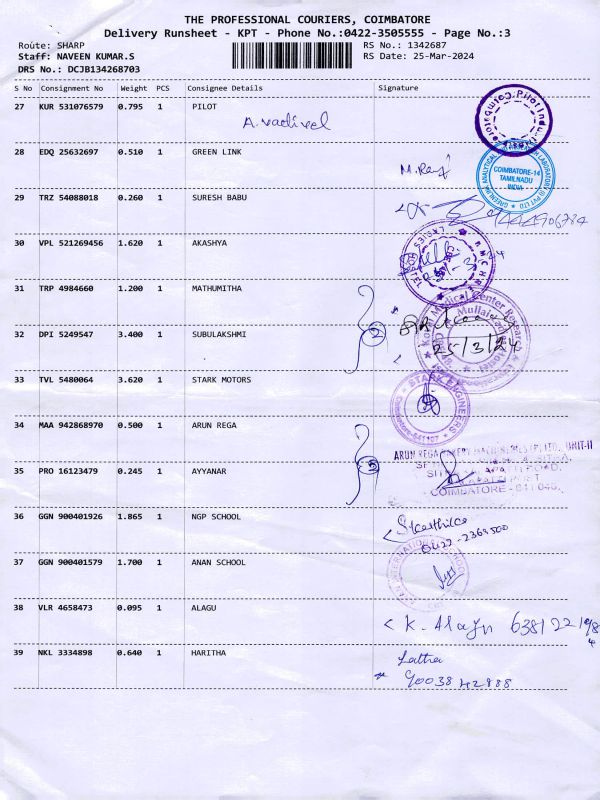 THE PROFESSIONAL COURIERS, COIMBATORE
Delivery Runsheet - KPT - Phone No.:0422-3505555 - Page No.:3
Route: SHARP
RS No.: 1342687
Staff: NAVEEN KUMAR.S
RS Date: 25-Mar-2024
DRS No.: DCJB134268703
S No Consignment No Weight PCS Consignee Details Signature
27 KUR 531076579 0.795 1 PILOT
A.vadivel
28 EDQ 25632697 0.510 1 GREEN LINK
COIMBATORE-14
TAMILNADU
INDIA
29 TRZ 54088018 0.260 1 SURESH BABU
30 VPL 521269456 1.620 1 AKASHYA
31 TRP 4984660 1.200 1 MATHUMITHA
32 DPI 5249547 3.400 1 SUBULAKSHMI
2
25/3/24
33 TVL 5480064 3.620 1 STARK MOTORS
STARK ENGINEERS
34 MAA 942868970 0.500 1 ARUN REGA
ARUN REGA UNIT-II
35 PRO 16123479 0.245 1 AYYANAR
COIMBATORE - 641 048.
36 GGN 900401926 1.865 1 NGP SCHOOL
0422-2369500
37 GGN 900401579 1.700 1 ANAN SCHOOL
INTERNATIONAL SCHOOL
38 VLR 4658473 0.095 1 ALAGU
39 NKL 3334898 0.640 1 HARITHA
Latha
90038 42888